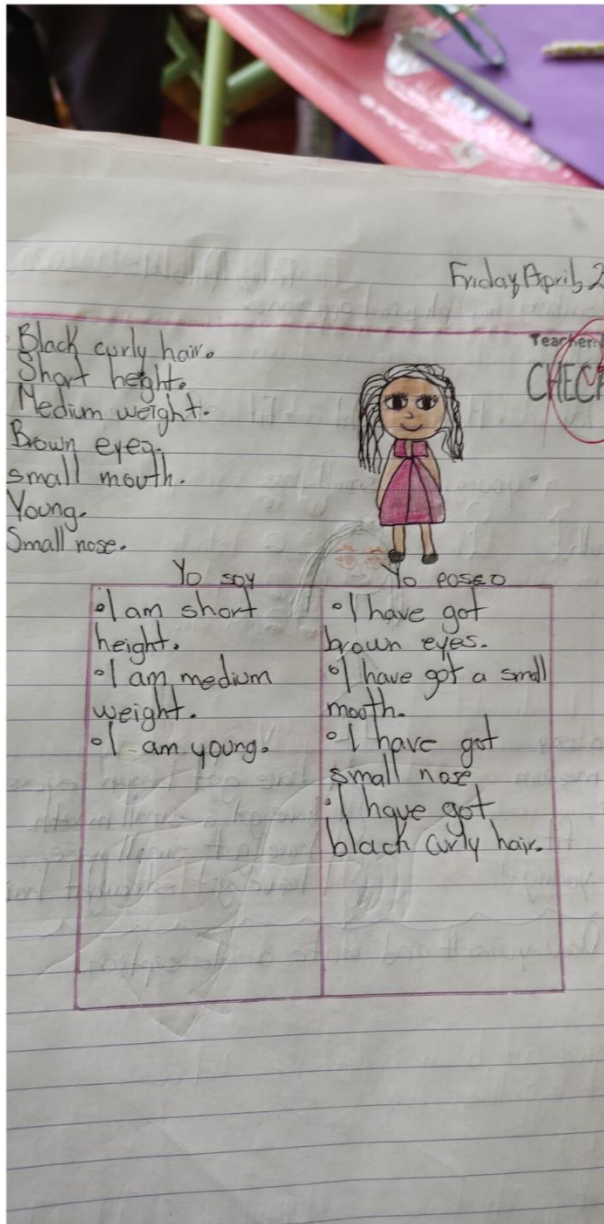 Friday April, 2
Teacher
CHEC
Black curly hair.
Short height.
Medium weight.
Brown eyes.
small mouth.
Young.
Small nose.
Yo soy
Yo poseo
•I am short
height.
•I am medium
weight.
•I am young.
•I have got
brown eyes.
•I have got a small
mooth.
•I have got
small nose
•I have got
blach curly hair.